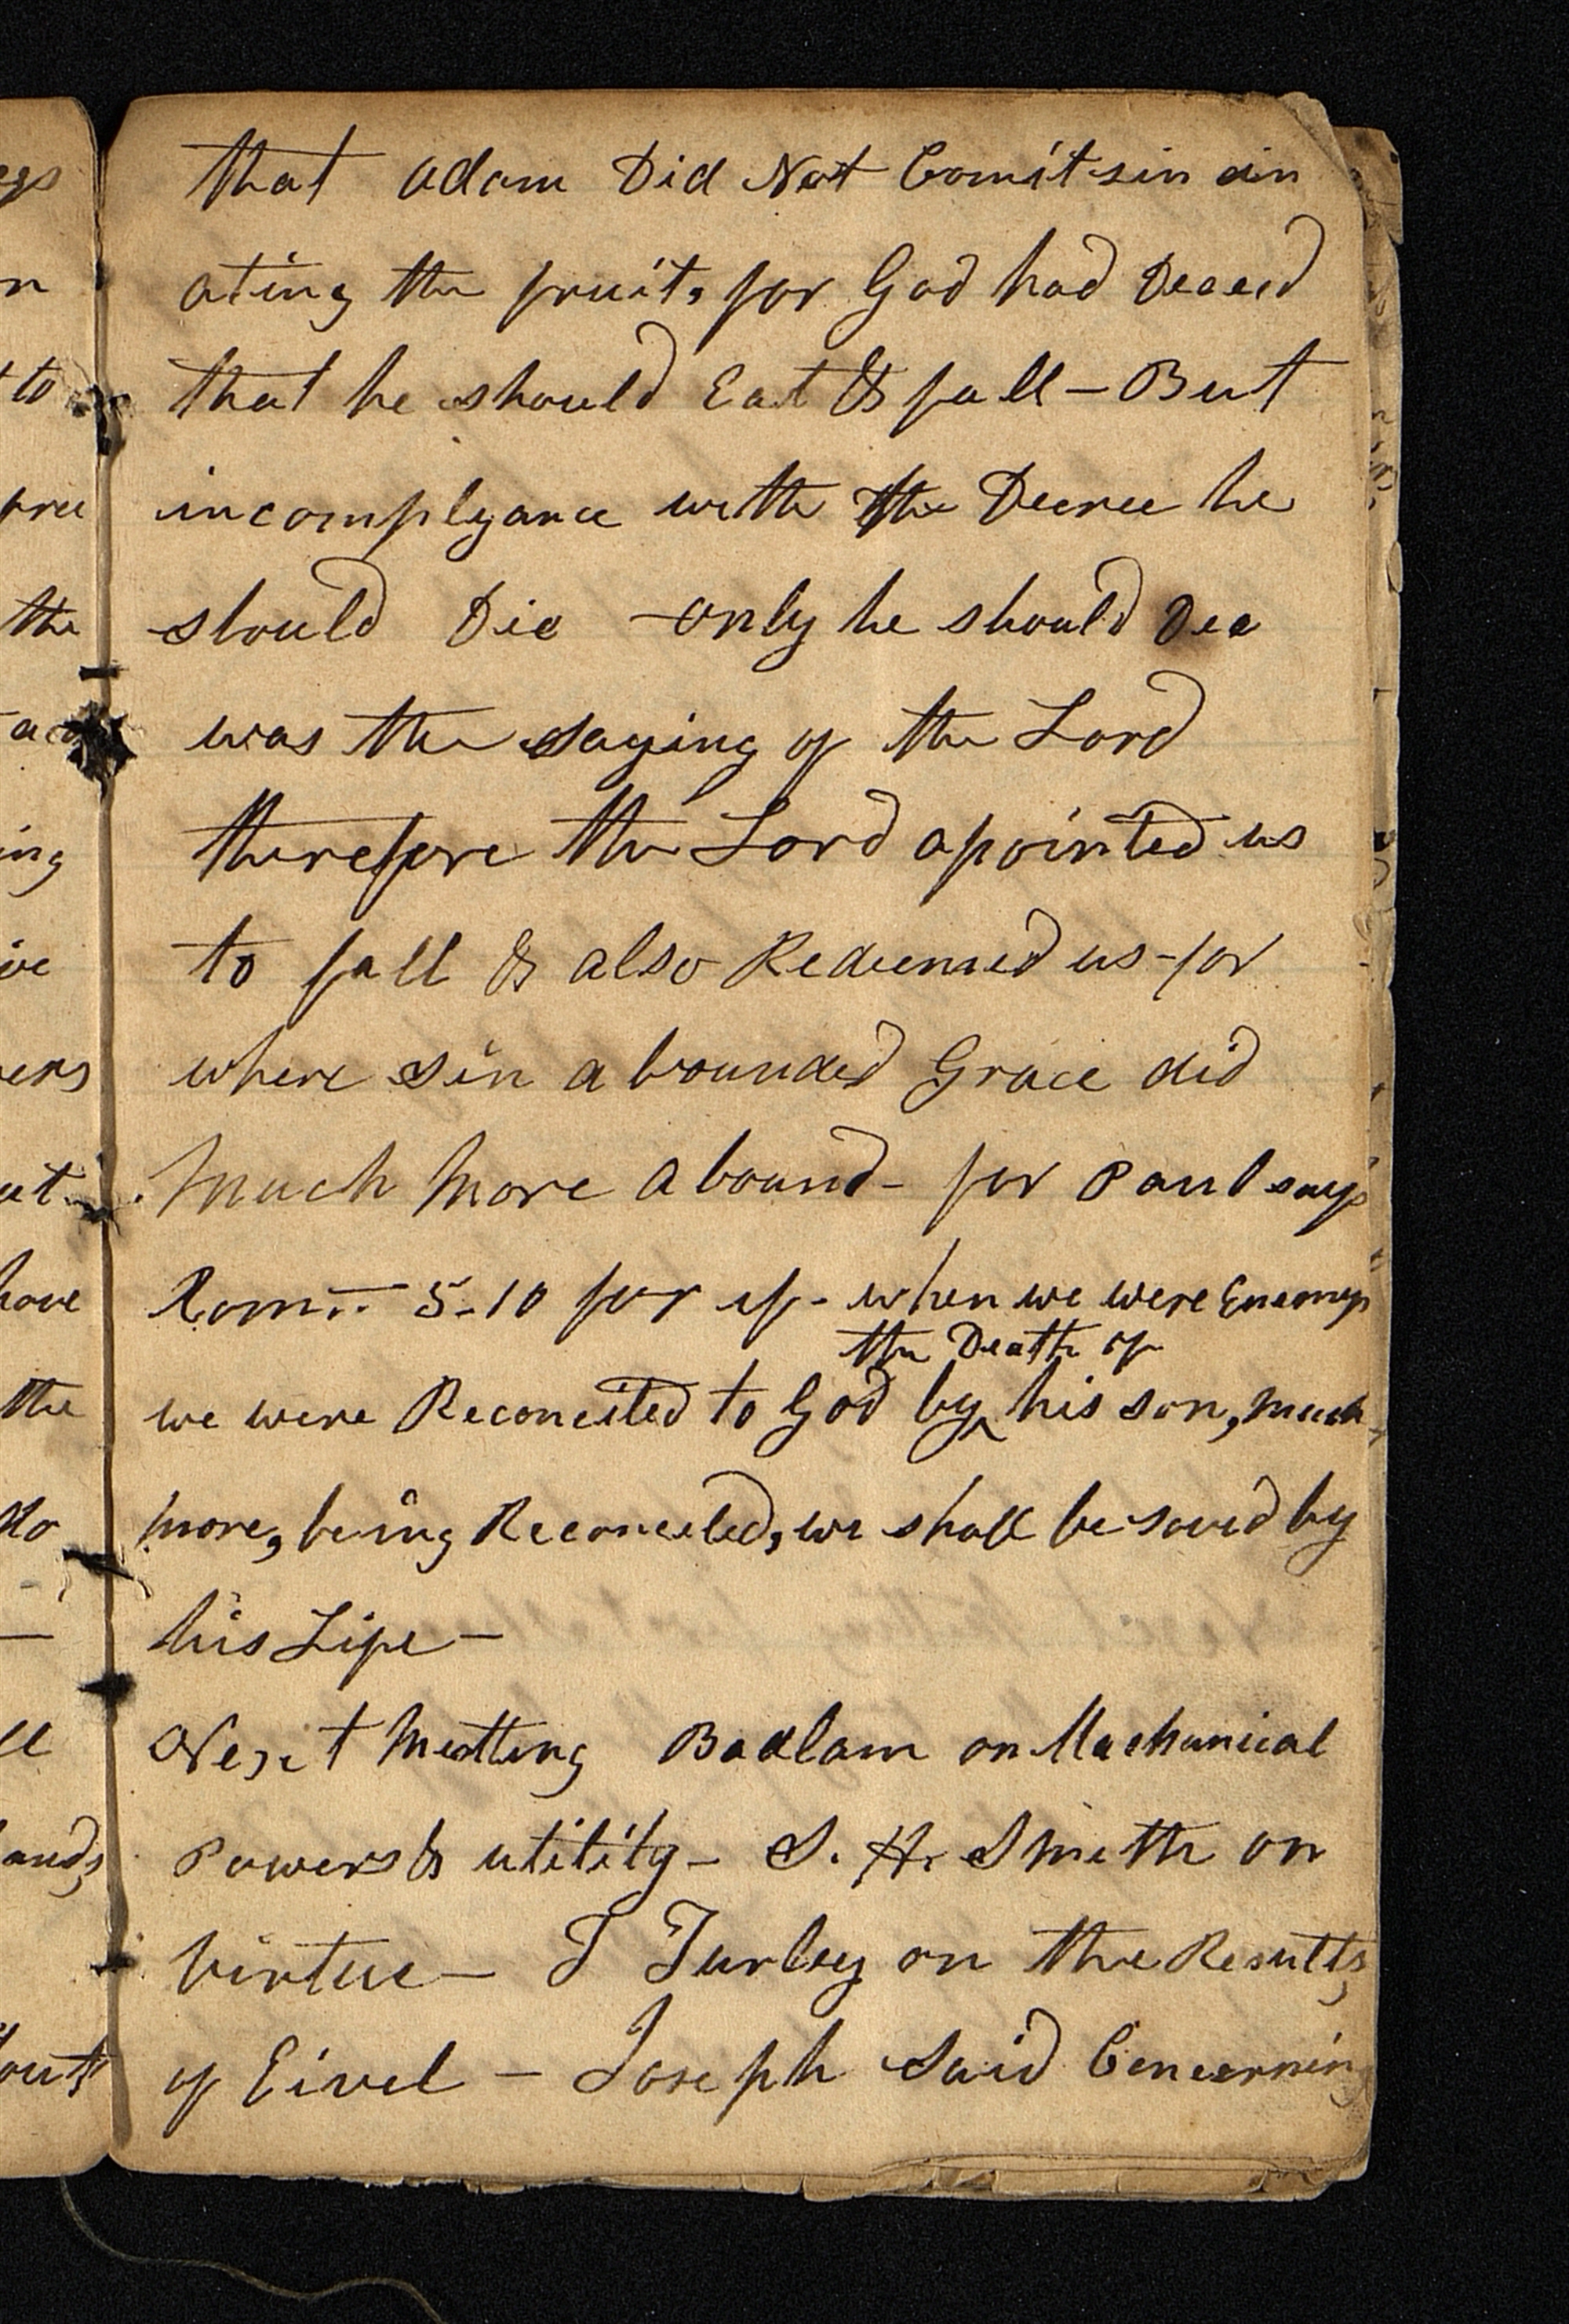 that adam Did Not Comit sin ein
ating the fruit, for God had Deceed
that he should Eat & fall – But
incomplyance with the Decree he
should Die – only he should Dee
was the saying of the Lord
therefore the Lord apointed us
to fall & also Redeemed us – for
where sin abounded Grace did
Much More abound – for Paul says
Rom.. 5-10 for if – when we were Enemys
the Death of
we were Reconciled to God by ^ his son, much
more, being Reconciled, we shall be saved by
his Life –
Next Meetting Badlam on Machanical
Powers & utility – S. H. Smith on
Virtue – T Turley on the Results
of Eivel – Joseph Said Concerning